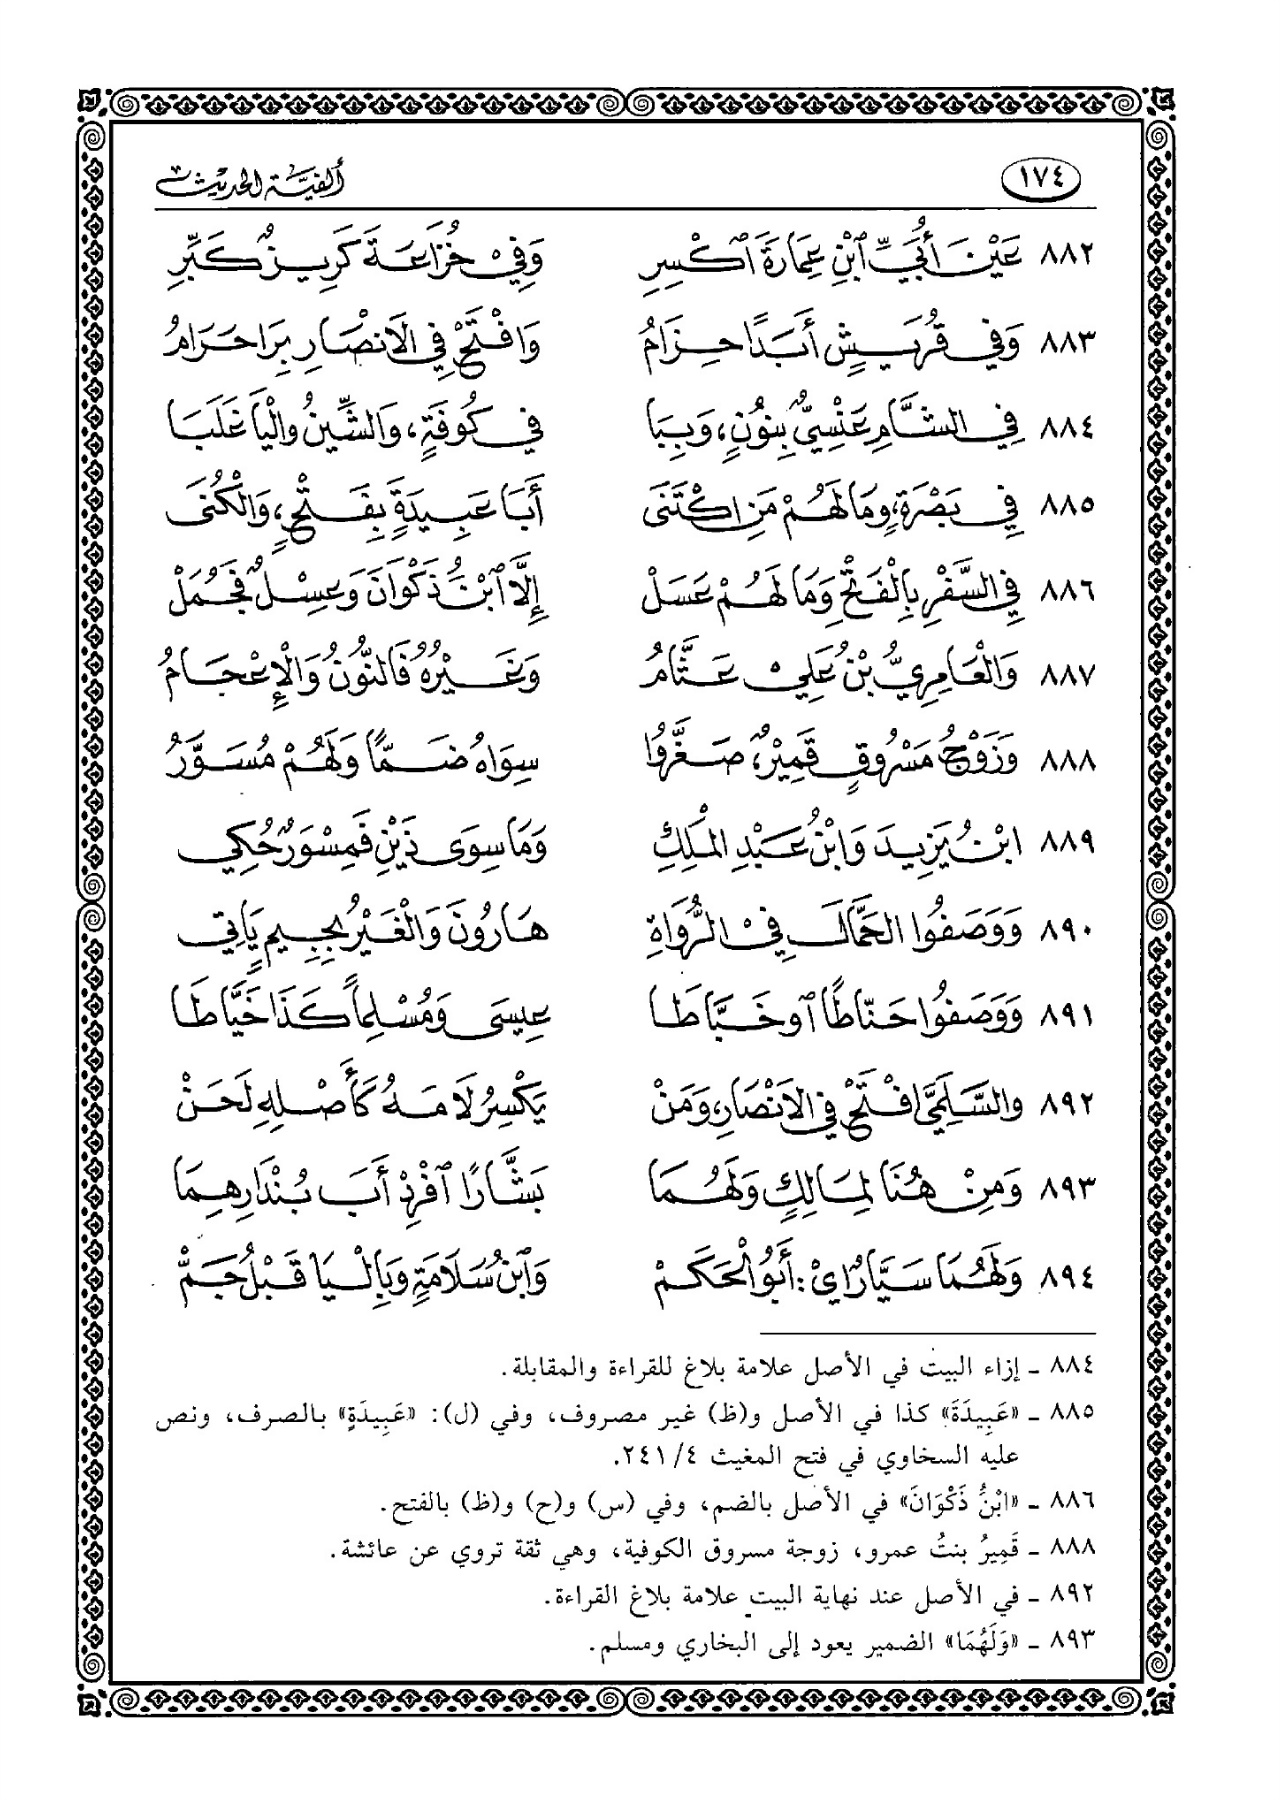 ١٧٤ ألفية الحديث
٨٨٢ عَيْنَ أُبَيِّ ٱبْنِ عِمَارَةَ ٱكْسِرِ وَفِيْ خُزَاعَةَ كَرِيزٌ كَبِّرِ
٨٨٣ وَفي قُرَيْشٍ أَبَدًا حِزَامُ وَافْتَحْ فِي الَانْصَارِ بِرَا حَرَامُ
٨٨٤ فِي الشَّامِ عَنْسِيٌّ بِنُونٍ، وَبِبَا في كُوفَةٍ، وَالشِّينُ وَاليَا غَلَبَا
٨٨٥ فِي بَصْرَةٍ، وَمَا لَهُمْ مَنِ اكْتَنَى أَبَا عَبِيدَةٍَ بِفَتْحٍ، وَالْكُنَى
٨٨٦ فِي السَّفْرِ بِالْفَتْحِ وَمَا لَهُمْ عَسَلْ إِلَّا ٱبْنَُ ذَكْوَانَ وَعِسْلٌ فَجُمَلْ
٨٨٧ وَالْعَامِرِيُّ بْنُ عَلِيْ عَثَّامُ وَغَيْرُهُ فَالنُّونُ وَالْإِعْجَامُ
٨٨٨ وَزَوْجُ مَسْرُوقٍ قَمِيْرٌ، صَغَّرُوا سِوَاهُ ضَمًّا وَلَهُمْ مُسَوَّرُ
٨٨٩ ابْنُ يَزِيدَ وَابْنُ عَبْدِ الْمَلِكِ وَمَا سِوَى ذَيْنِ فَمِسْوَرٌ حُكِي
٨٩٠ وَوَصَفُوا الحَمَّالَ فِيْ الرُّوَاةِ هَارُونَ وَالْغَيْرُ بِجِيمٍ يَاتِي
٨٩١ وَوَصَفُوا حَنَّاطًا ٱوْ خَبَّاطَا عِيسَى وَمُسْلِماً كَذَا خَيَّاطَا
٨٩٢ والسَّلَمِيَّ افْتَحْ فِي الَانْصَارِ، وَمَنْ يَكْسِرُ لَامَهُ كَأَصْلِهِ لَحَنْ
٨٩٣ وَمِنْ هُنَا لِمَالِكٍ وَلَهُمَا بَشَّارًا ٱفْرِدْ أَبَ بُنْدَارِهِمَا
٨٩٤ وَلَهُمَا سَيَّارٌ اَيْ: أَبُو الْحَكَمْ وَٱبْنُ سَلَامَةٍ وَبِالْيَا قَبْلُ جَمّْ
٨٨٤ ـ إزاء البيت في الأصل علامة بلاغ للقراءة والمقابلة.
٨٨٥ ـ «عَبِيدَةَ» كذا في الأصل و(ظ) غير مصروف، وفي (ل): «عَبِيدَةٍ» بالصرف، ونص
عليه السخاوي في فتح المغيث ٢٤١/٤.
٨٨٦ ـ «ابْنُ ذَكْوَانَ» في الأصل بالضم، وفي (س) و(ح) و(ظ) بالفتح.
٨٨٨ ـ قَمِيرُ بنتُ عمرو، زوجة مسروق الكوفية، وهي ثقة تروي عن عائشة.
٨٩٢ ـ في الأصل عند نهاية البيت علامة بلاغ القراءة.
٨٩٣ ـ «وَلَهُمَا» الضمير يعود إلى البخاري ومسلم.